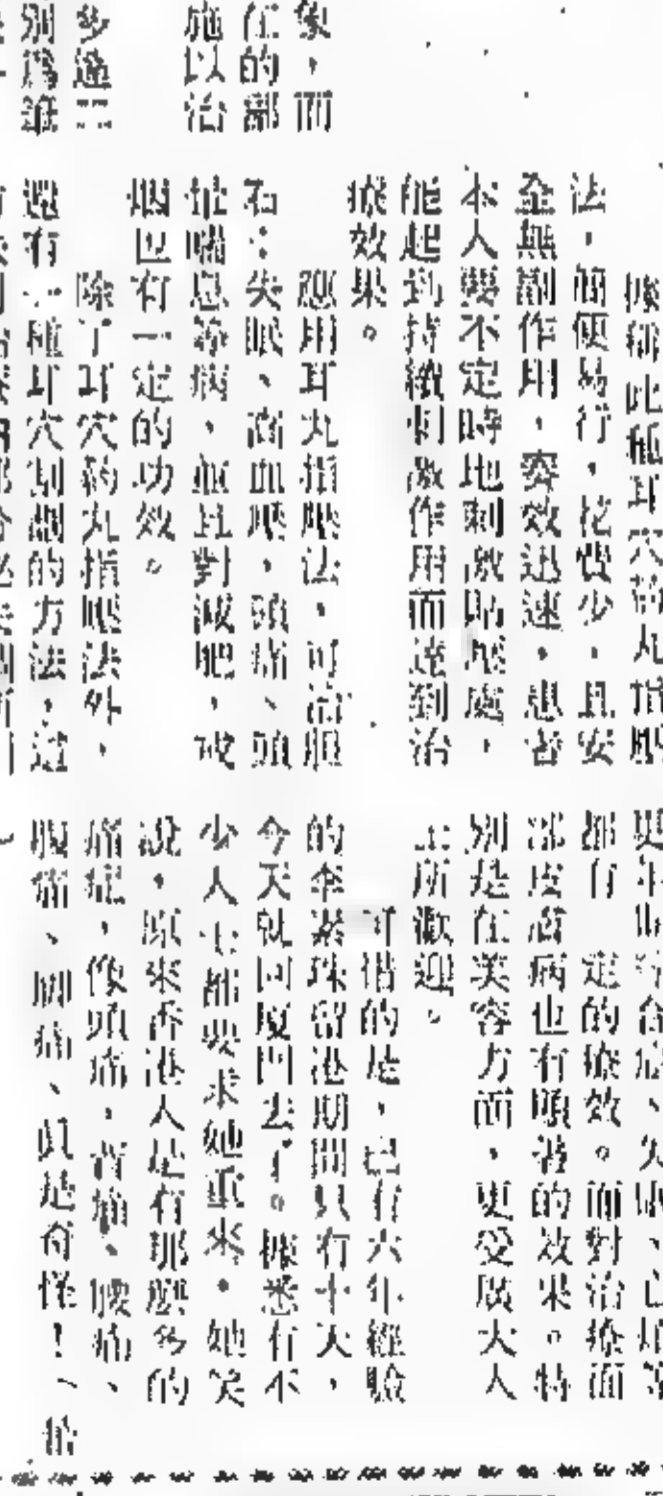 象，而
在的部
施以治
多過二
別爲
據稱此種耳穴藥丸指壓
法，簡便易行，花費少，且安
全無副作用，奏效迅速，患者
本人要不定時地刺激貼壓處，
能起到持續刺激作用而達到治
療效果。
應用耳丸指壓法，可治胆
石；失眠、高血壓，頭痛、頭
喘息等病，並且對減肥，戒
烟也有一定的功效。
除了耳穴藥丸指壓法外，
還有一種耳穴割劃的方法，這
更年期綜合症、失眠、
都有 定的療效。而對治療面
部皮膚病也有顯著的效果。特
別是在美容方面，更受廣大人
士所歡迎。
可惜的是，已有六年經驗
的李素珠留港期間只有十天，
今天就回廈門去了。據悉有不
少人士都要求她重來。她笑
說，原來香港人是有那麽多的
痛症，像頭痛，背痛、腰痛、
腹痛、脚痛、眞是奇怪！